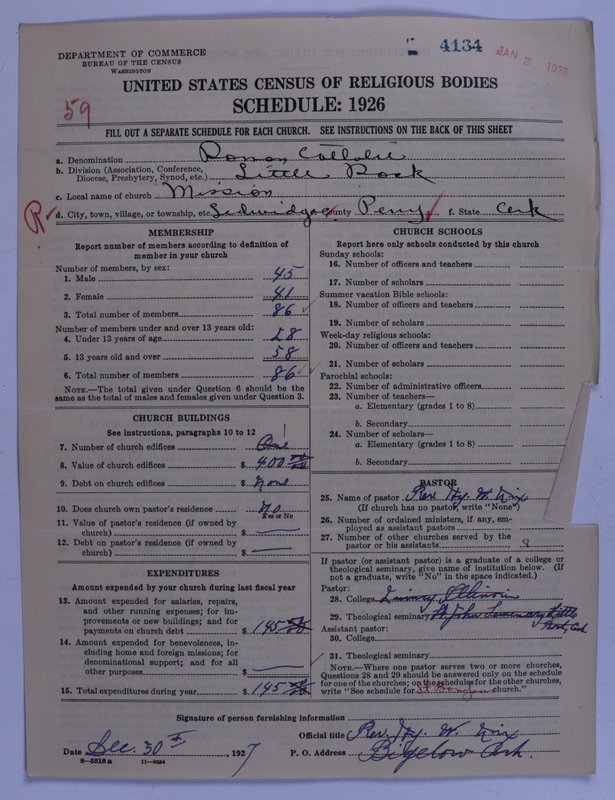 DEPARTMENT OF COMMERCE
BUREAU OF THE CENSUS
WASHINGTON
4134
JAN 3 1928
UNITED STATES CENSUS OF RELIGIOUS BODIES
SCHEDULE: 1926
59
FILL OUT A SEPARATE SCHEDULE FOR EACH CHURCH. SEE INSTRUCTIONS ON THE BACK OF THIS SHEET
a. Denomination Roman Catholic
b. Division (Association, Conference, Diocese, Presbytery, Synod, etc.) Little Rock
c. Local name of church Mission
R d. City, town, village, or township, etc. County Perry f. State Ark
MEMBERSHIP
Report number of members according to definition of member in your church
Number of members, by sex:
1. Male 45
2. Female 41
3. Total number of members 86
Number of members under and over 13 years old:
4. Under 13 years of age 28
5. 13 years old and over 58
6. Total number of members 86
NOTE.—The total given under Question 6 should be the same as the total of males and females given under Question 3.
CHURCH BUILDINGS
See instructions, paragraphs 10 to 12
7. Number of church edifices One 1
8. Value of church edifices $ 400
9. Debt on church edifices $ None
10. Does church own pastor's residence No
Yes or No
11. Value of pastor's residence (if owned by church) $ —
12. Debt on pastor's residence (if owned by church) $ —
EXPENDITURES
Amount expended by your church during last fiscal year
13. Amount expended for salaries, repairs, and other running expenses; for improvements or new buildings; and for payments on church debt $ 145
14. Amount expended for benevolences, including home and foreign missions; for denominational support; and for all other purposes $ —
15. Total expenditures during year $ 145
CHURCH SCHOOLS
Report here only schools conducted by this church
Sunday schools:
16. Number of officers and teachers
17. Number of scholars
Summer vacation Bible schools:
18. Number of officers and teachers
19. Number of scholars
Week-day religious schools:
20. Number of officers and teachers
21. Number of scholars
Parochial schools:
22. Number of administrative officers
23. Number of teachers—
a. Elementary (grades 1 to 8)
b. Secondary
24. Number of scholars—
a. Elementary (grades 1 to 8)
b. Secondary
PASTOR
25. Name of pastor Rev. Hy. W. Nix
(If church has no pastor, write "None")
26. Number of ordained ministers, if any, employed as assistant pastors
27. Number of other churches served by the pastor or his assistants
If pastor (or assistant pastor) is a graduate of a college or theological seminary, give name of institution below. (If not a graduate, write "No" in the space indicated.)
Pastor:
28. College Quincy Illinois
29. Theological seminary St. John Seminary Little Rock, Ark
Assistant pastor:
30. College
31. Theological seminary
NOTE.—Where one pastor serves two or more churches, Questions 28 and 29 should be answered only on the schedule for one of the churches; on the schedules for the other churches, write "See schedule for church."
Signature of person furnishing information
Official title Rev. Hy. W. Nix
Date Dec. 30th, 1927 P. O. Address Bigelow Ark.
8—5518a 11—9064